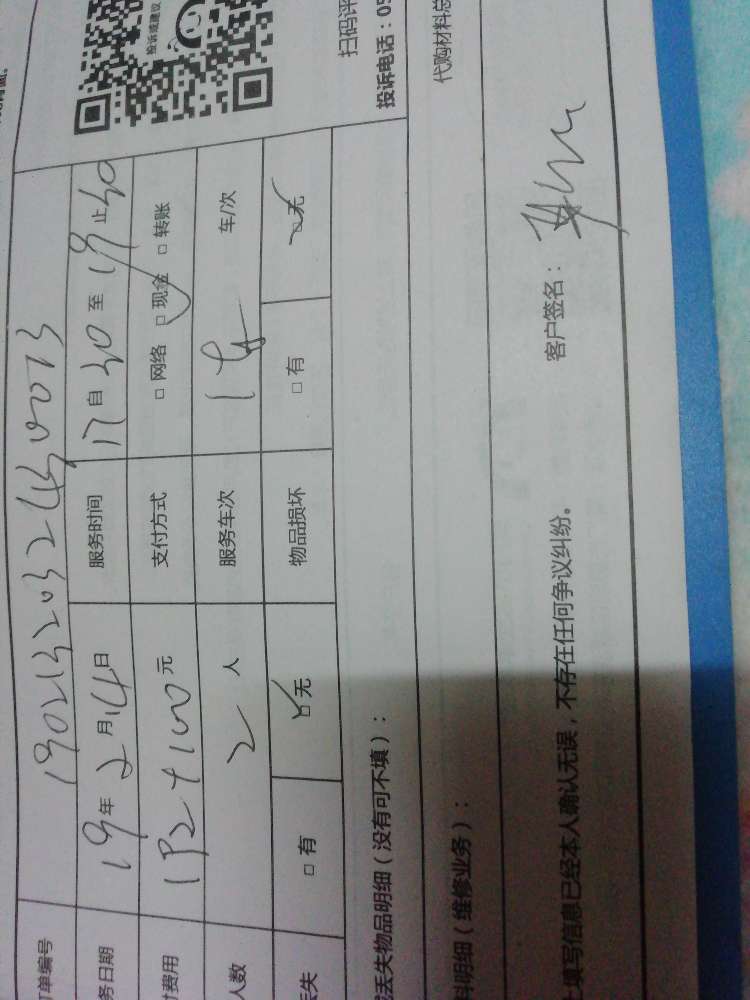 检诉或建议
扫码评
投诉电话：05
单编号 1902132032430013
务日期 19年2月14日 服务时间 17自30至19止30
费用 192+100元 支付方式 □网络 □现金 □转账
人数 2人 服务车次 1 车/次
丢失 □有 □无 物品损坏 □有 □无
丢失物品明细（没有可不填）：
代购材料总
料明细（维修业务）：
客户签名：
填写信息已经本人确认无误，不存在任何争议纠纷。